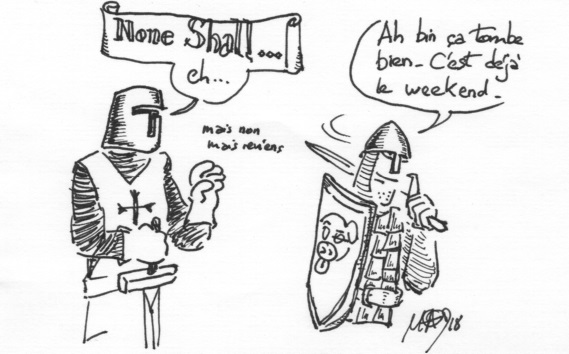 None Shall...
eh...
mais non
mais reviens
Ah bin ça tombe
bien - C'est déjà
le weekend -
18